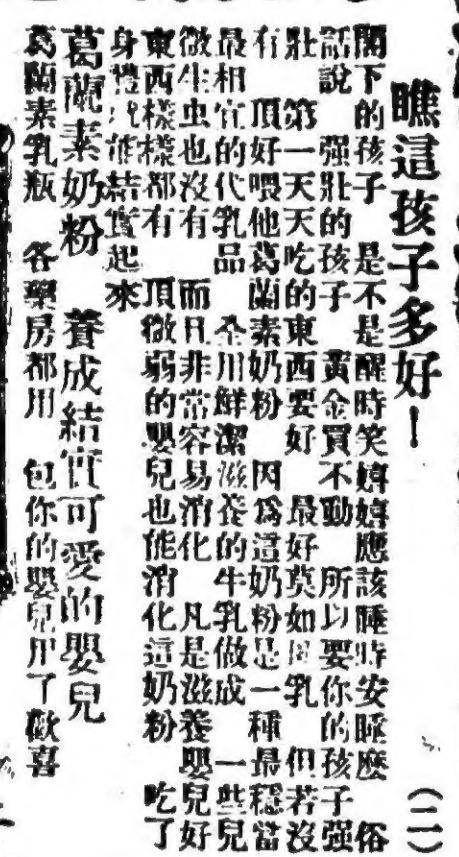 瞧這孩子多好！ (二)
閣下的孩子 是不是醒時笑嬉嬉應該睡時安睡麼 俗
話說 强壯的孩子 黃金買不動 所以要你的孩子强
壯 第一天天吃的東西要好 最好莫如乳 但若沒
有 頂好喂他葛蘭素奶粉 因爲這奶粉是一種最穩當
最相宜的代乳品 全用鮮潔滋養的牛乳做成 一些兒
微生虫也沒有 而且非常容易消化 凡是滋養嬰兒好
東西樣樣都有 頂微弱的嬰兒也能消化這奶粉 吃了
身體就能結實起來
葛蘭素奶粉 養成結實可愛的嬰兒
葛蘭素乳瓶 各藥房都用 包你的嬰兒用了歡喜